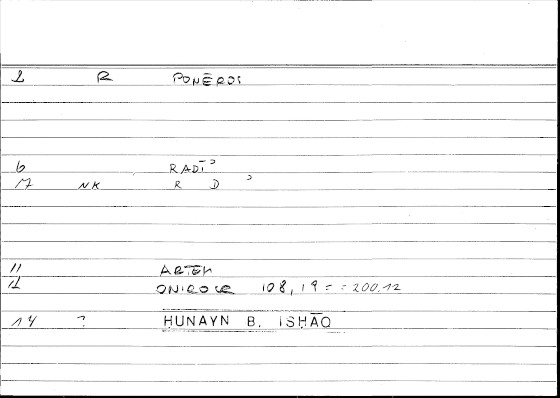 1 R PONĒROS
6 RADĪʾ
17 NK R D ʾ
11 ARTEM
12 ONIROCR 108,19 = = 200,12
14 ? HUNAYN B. ISḤĀQ